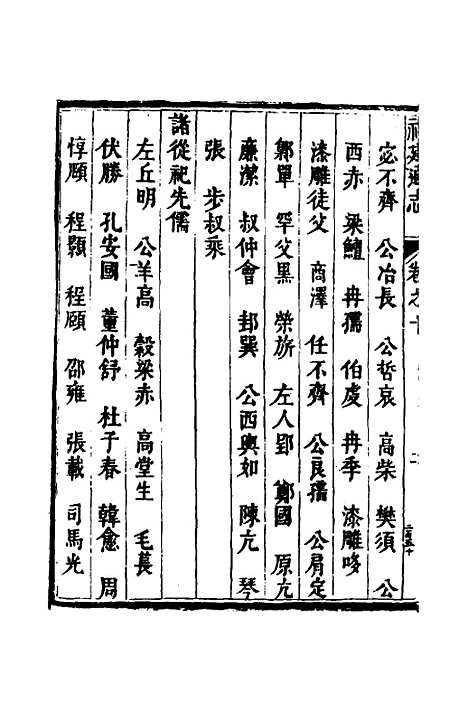 福建通志 卷之十
宓不齊 公冶長 公晳哀 高柴 樊須 公
西赤 梁鱣 冉孺 伯虔 冉季 漆雕哆
漆雕徒父 商澤 任不齊 公良孺 公肩定
鄡單 罕父黑 榮旂 左人郢 鄭國 原亢
廉潔 叔仲會 邽巽 公西輿如 陳亢 琴
張 步叔乘
諸從祀先儒
左丘明 公羊高 穀梁赤 高堂生 毛萇
伏勝 孔安國 董仲舒 杜子春 韓愈 周
惇頤 程顥 程頤 邵雍 張載 司馬光